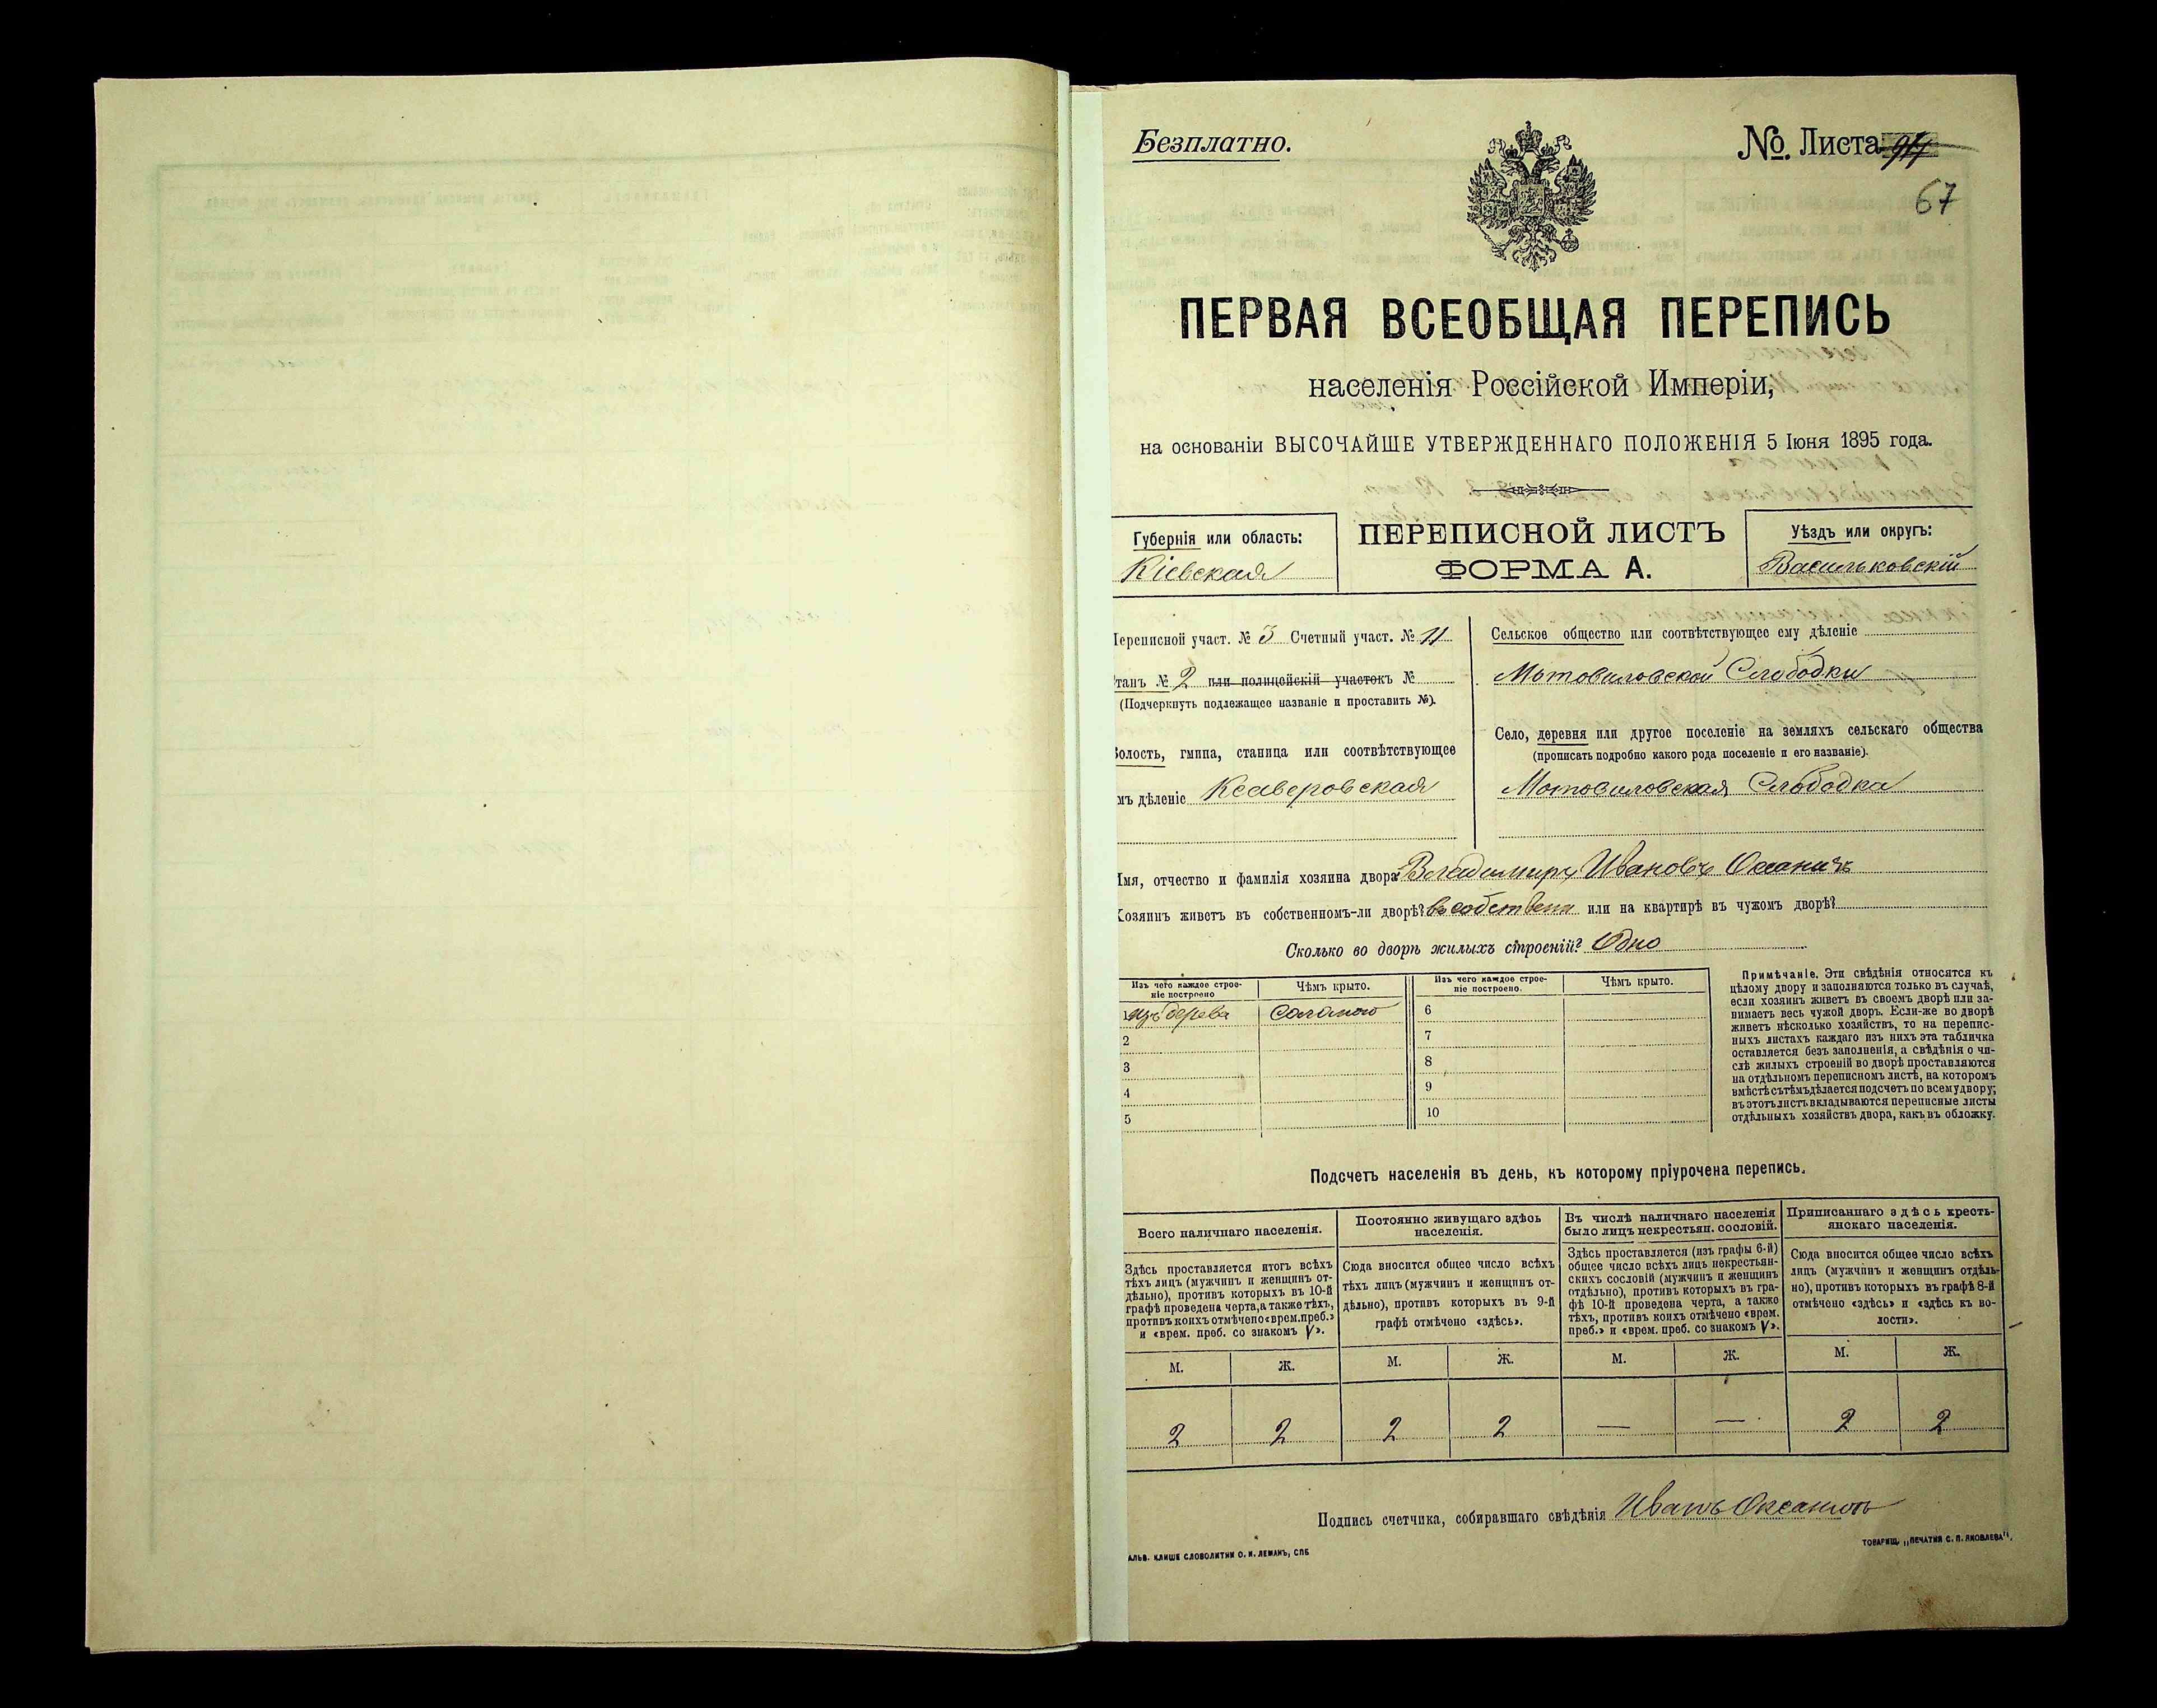 Безплатно.
№. Листа
67
ПЕРВАЯ ВСЕОБЩАЯ ПЕРЕПИСЬ
населенія Россійской Имперіи,
на основаніи ВЫСОЧАЙШЕ УТВЕРЖДЕННАГО ПОЛОЖЕНІЯ 5 Іюня 1895 года.
Губернія или область:
Кіевская
ПЕРЕПИСНОЙ ЛИСТЪ
ФОРМА А.
Уѣздъ или округъ:
Васильковскій
Переписной участ. № 3 Счетный участ. № 11
Станъ № 2 или полицейскій участокъ №
(Подчеркнуть подлежащее названіе и проставить №).
Волость, гмина, станица или соотвѣтствующее
имъ дѣленіе Ксаверовская
Сельское общество или соотвѣтствующее ему дѣленіе
Мотовиловской Слободки
Село, деревня или другое поселеніе на земляхъ сельскаго общества
(прописать подробно какого рода поселеніе и его названіе).
Мотовиловская Слободка
Имя, отчество и фамилія хозяина двора Владимиръ Ивановъ
Хозяинъ живетъ въ собственномъ-ли дворѣ? въ собствен или на квартирѣ въ чужомъ дворѣ?
Сколько во дворѣ жилыхъ строеній? Одно
Изъ чего каждое строе-
ніе построено
Чѣмъ крыто.
Изъ чего каждое строе-
ніе построено.
Чѣмъ крыто.
1 изъ дерева Соломою 6
2 7
3 8
4 9
5 10
Примѣчаніе. Эти свѣдѣнія относятся къ
цѣлому двору и заполняются только въ случаѣ,
если хозяинъ живетъ въ своемъ дворѣ или за-
нимаетъ весь чужой дворъ. Если-же во дворѣ
живетъ нѣсколько хозяйствъ, то на перепис-
ныхъ листахъ каждаго изъ нихъ эта табличка
оставляется безъ заполненія, а свѣдѣнія о чи-
слѣ жилыхъ строеній во дворѣ проставляются
на отдѣльномъ переписномъ листѣ, на которомъ
вмѣстѣ съ тѣмъ дѣлается подсчетъ по всему двору;
въ этотъ листъ вкладываются переписные листы
отдѣльныхъ хозяйствъ двора, какъ въ обложку.
Подсчетъ населенія въ день, къ которому пріурочена перепись.
Всего наличнаго населенія.
Здѣсь проставляется итогъ всѣхъ
тѣхъ лицъ (мужчинъ и женщинъ от-
дѣльно), противъ которыхъ въ 10-й
графѣ проведена черта, а также тѣхъ,
противъ коихъ отмѣчено «врем. преб.»
и «врем. преб. со знакомъ V».
Постоянно живущаго здѣсь
населенія.
Сюда вносится общее число всѣхъ
тѣхъ лицъ (мужчинъ и женщинъ от-
дѣльно), противъ которыхъ въ 9-й
графѣ отмѣчено «здѣсь».
Въ числѣ наличнаго населенія
было лицъ некрестьян. сословій.
Здѣсь проставляется (изъ графы 6-й)
общее число всѣхъ лицъ некрестьян-
скихъ сословій (мужчинъ и женщинъ
отдѣльно), противъ которыхъ въ гра-
фѣ 10-й проведена черта, а также
тѣхъ, противъ коихъ отмѣчено «врем.
преб.» и «врем. преб. со знакомъ V».
Приписаннаго здѣсь кресть-
янскаго населенія.
Сюда вносится общее число всѣхъ
лицъ (мужчинъ и женщинъ отдѣль-
но), противъ которыхъ въ графѣ 8-й
отмѣчено «здѣсь» и «здѣсь къ во-
лости».
М. Ж. М. Ж. М. Ж. М. Ж.
2 2 2 2 — — 2 2
Подпись счетчика, собиравшаго свѣдѣнія Иванъ
АЛЬВ. КЛИШЕ СЛОВОЛИТНИ О. И. ЛЕМАНЪ, СПБ
ТОВАРИЩ. „ПЕЧАТНЯ С. П. ЯКОВЛЕВА".